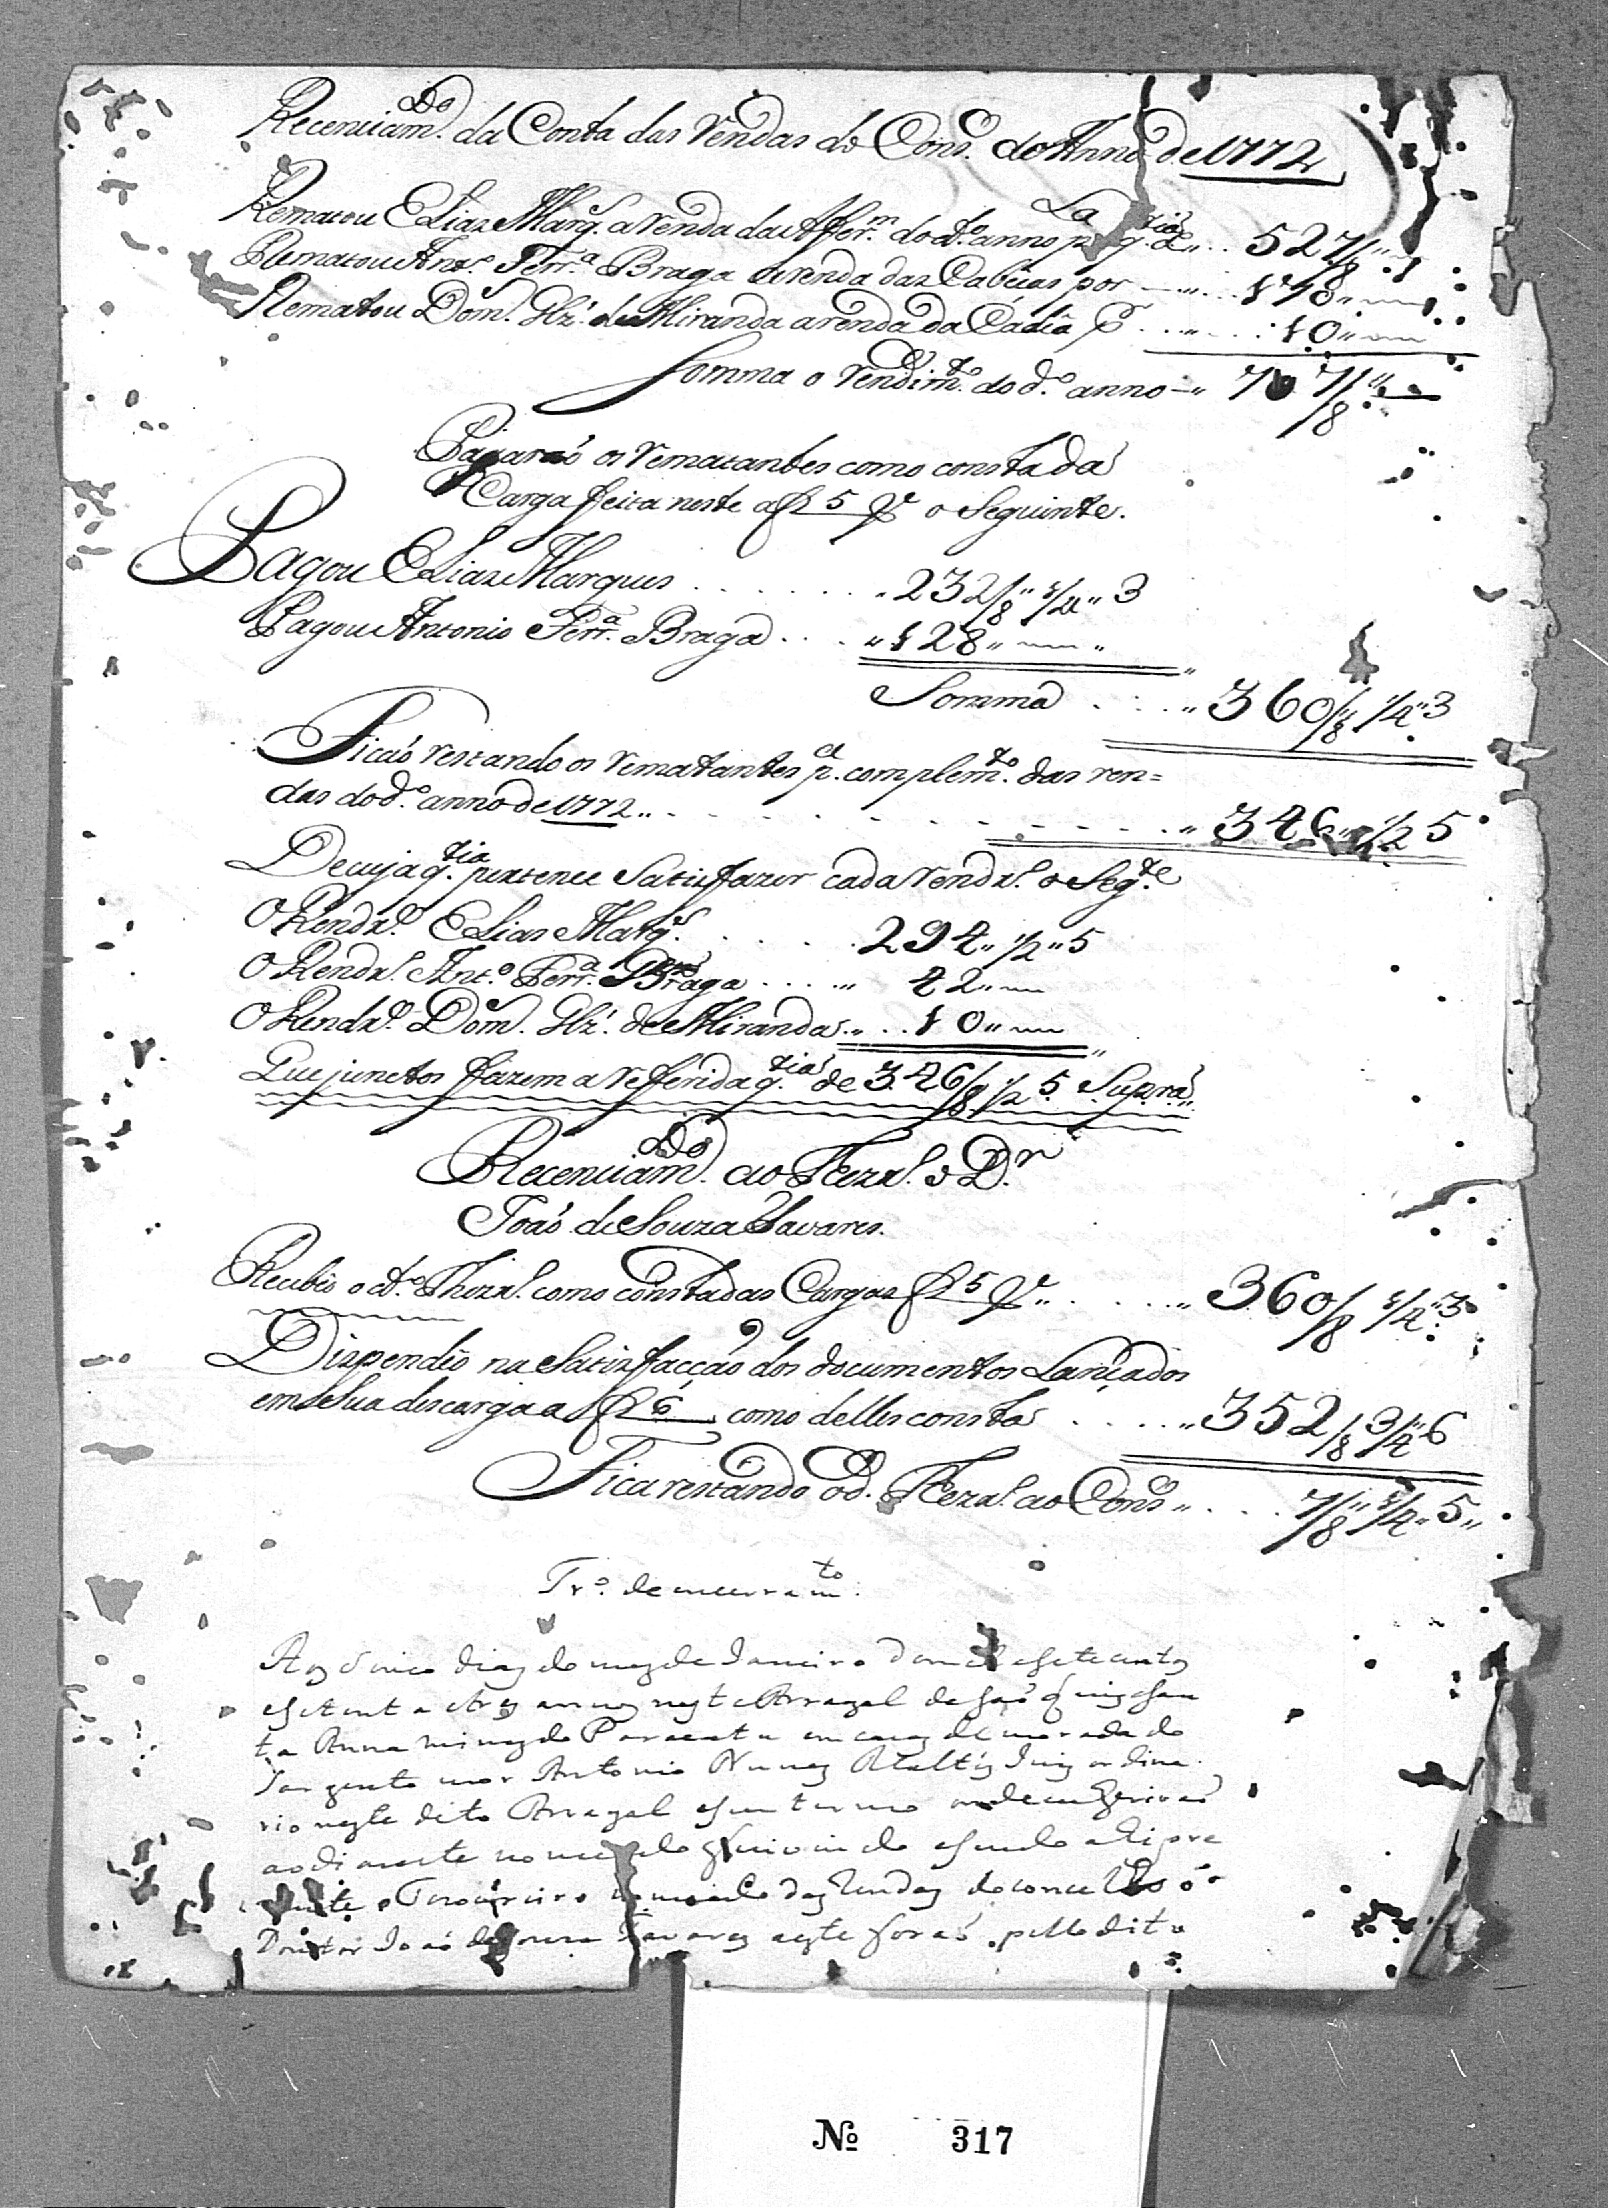 Recenciam.Do da Conta das Rendas do Cons.o do Anno de 1772
Rematou Elias Marq.s a renda das Afer.m do d.to anno pLa q.tia de ,, .. 527/8 ,,
Rematou Ant.o Ferr.a Braga a renda das Cabeças por — ,, ... 170 ,, —
Rematou Dom.os Glz' de Miranda a renda da Cadêa P.r ... ,, ... 10 ,, —
Somma o Rendim.to do d.o anno — ,, 707/8 ,,
Pagaraó os rematantes como consta da
Carga feita neste a f 5 V.e o Seguinte.
Pagou Elias Marques . . . . . . . 232/8 ,, 1/4 ,, 3
Pagou Antonio Ferr.a Braga . . . ,, 128 ,, — ,,
Somma . . . ,, 360/8 ,, 1/4 ,, 3
Ficaó restando os rematantes p.a complem.to das ren=
das do d.o anno de 1772 ,, . . . . . . . . . . ,, 346 ,, 1/2 5
De cuja q.tia pertence Satisfazer cada rendr.o o Seg.te
O Rendr.o Elias Marq.s . . . . . 294 ,, 1/2 ,, 5
O Rendr.o Ant.o Ferr.a Braga . . . . ,, 42 ,, —
O Rendr.o Dom.os Glz' de Miranda ,, . . 10 ,, —
Que junctos fazem a refferida q.tia de 346/8 1/2 5 Supra ,,
Recenciam.Do ao Thezr.o o D.r
Joaó de Souza Tavares.
Recebêo o d.to Thezr.o como consta das Cargas f 5 V.e ,, . . . . ,, 360/8 1/4 ,, 3
Dispendêo na Satisfacçaó dos documentos Lançados
em Sua descarga a f 6 como delles consta . . . . ,, 352/8 3/4 ,, 6
Fica restando o d.o Thezr.o ao Cons.o ,, . . . 7/8 ,, 1/4 ,, 5 ,,
Tr.o de encerram.to
Aos sinco dias do mez de Janeiro de mil e setecentos
e setenta e tres annos neste Arrayal de Saó Luis e San
ta Anna minas do Paracatu em cazas de morada do
Sargento mor Antonio Nunes Juis ordina
rio neste dito Arrayal e seu termo onde eu Escrivaó
ao diante nomeado fui vindo e sendo ahi pre
zente o Thezoureiro nomeado das Rendas do concelho o
Doutor Joaó de Souza Tavares e este foraó pello dito
No 317